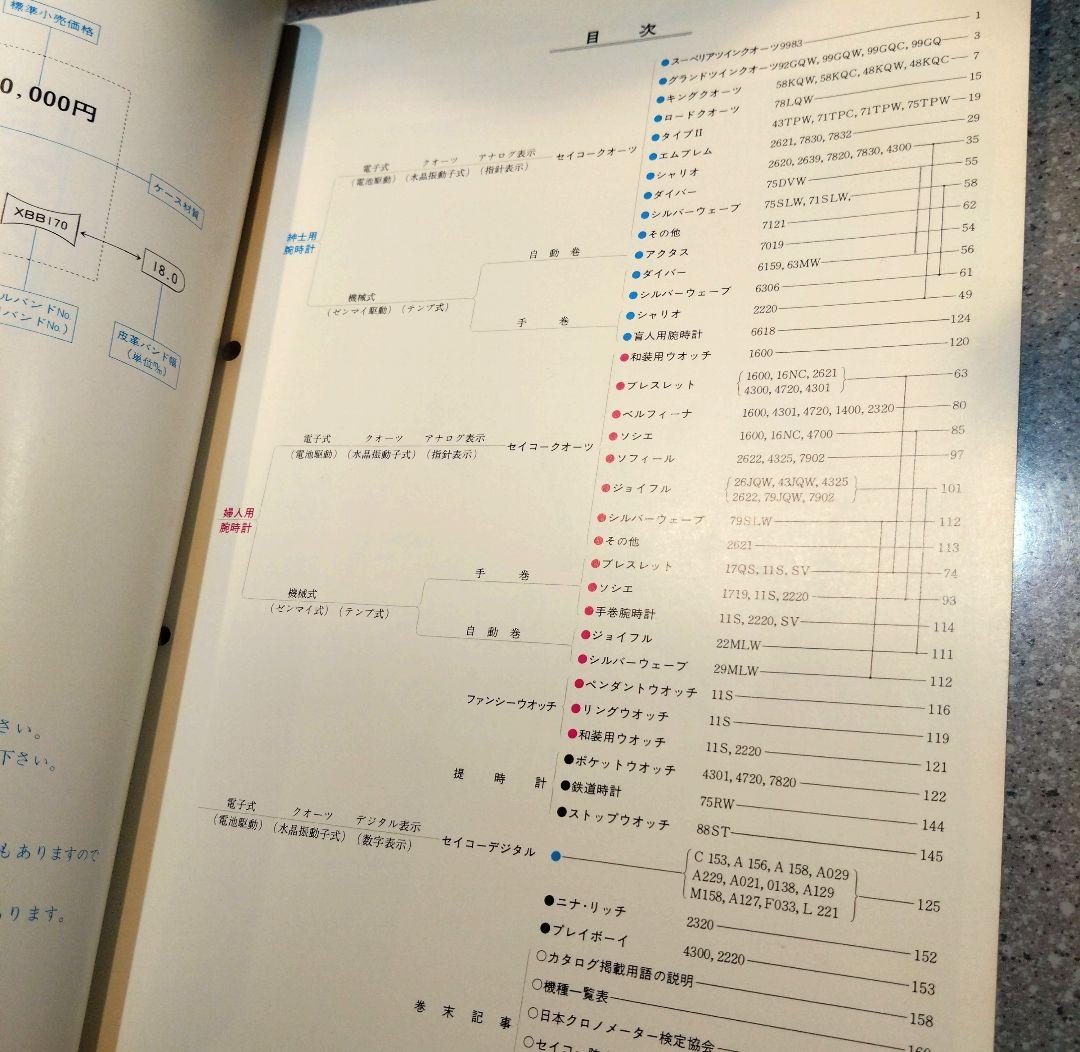 標準小売価格
0,000円
ケース材質
XBB170
18.0
ルバンドNo.
バンドNo.)
皮革バンド幅
(単位m/m)
さい。
下さい。
もありますので
ります。
目次
紳士用
腕時計
電子式 クオーツ アナログ表示 セイコークオーツ
(電池駆動)(水晶振動子式)(指針表示)
●スーペリアツインクオーツ9983 1
●グランドツインクオーツ92GQW, 99GQW, 99GQC, 99GQ 3
●キングクオーツ 58KQW, 58KQC, 48KQW, 48KQC 7
●ロードクオーツ 78LQW 15
●タイプII 43TPW, 71TPC, 71TPW, 75TPW 19
●エムブレム 2621, 7830, 7832 29
●シャリオ 2620, 2639, 7820, 7830, 4300 35
●ダイバー 75DVW 55
●シルバーウェーブ 75SLW, 71SLW, 58
●その他 7121 62
機械式
(ゼンマイ駆動)(テンプ式)
自動巻
●アクタス 7019 54
●ダイバー 6159, 63MW 56
●シルバーウェーブ 6306 61
手巻
●シャリオ 2220 49
●盲人用腕時計 6618 124
婦人用
腕時計
電子式 クオーツ アナログ表示 セイコークオーツ
(電池駆動)(水晶振動子式)(指針表示)
●和装用ウオッチ 1600 120
●ブレスレット 1600, 16NC, 2621 63
4300, 4720, 4301
●ベルフィーナ 1600, 4301, 4720, 1400, 2320 80
●ソシエ 1600, 16NC, 4700 85
●ソフィール 2622, 4325, 7902 97
●ジョイフル 26JQW, 43JQW, 4325 101
2622, 79JQW, 7902
●シルバーウェーブ 79SLW 112
●その他 2621 113
機械式
(ゼンマイ式)(テンプ式)
手巻
●ブレスレット 17QS, 11S, SV 74
●ソシエ 1719, 11S, 2220 93
●手巻腕時計 11S, 2220, SV 114
自動巻
●ジョイフル 22MLW 111
●シルバーウェーブ 29MLW 112
ファンシーウオッチ
●ペンダントウオッチ 11S 116
●リングウオッチ 11S 119
●和装用ウオッチ 11S, 2220 121
提時計
●ポケットウオッチ 4301, 4720, 7820 122
●鉄道時計 75RW 144
●ストップウオッチ 88ST 145
電子式 クオーツ デジタル表示 セイコーデジタル
(電池駆動)(水晶振動子式)(数字表示)
C 153, A 156, A 158, A029
A229, A021, 0138, A129 125
M158, A127, F033, L 221
●ニナ・リッチ 2320 152
●プレイボーイ 4300, 2220 153
巻末記事
○カタログ掲載用語の説明 158
○機種一覧表
○日本クロノメーター検定協会